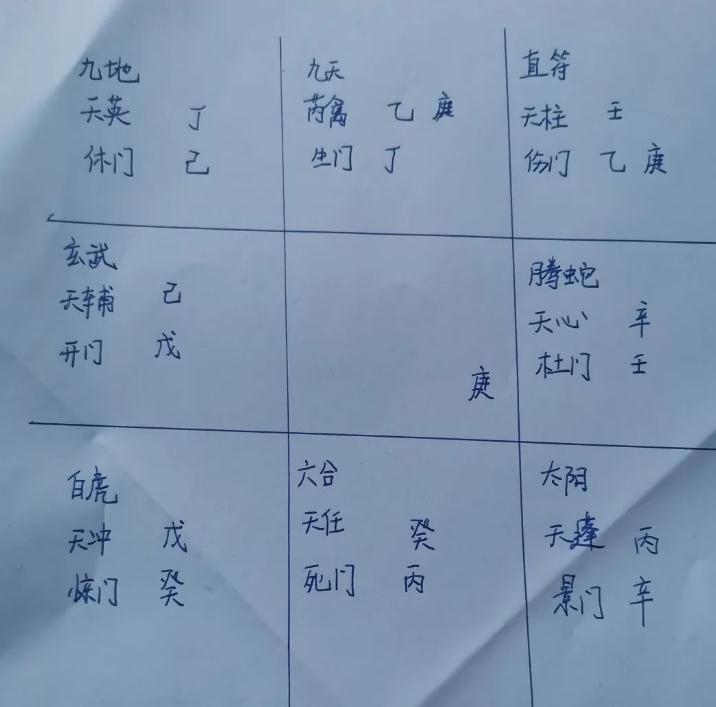 九地
天英 丁
休门 己
九天
芮禽 乙 庚
生门 丁
直符
天柱 壬
伤门 乙 庚
玄武
天辅 己
开门 戊
庚
腾蛇
天心 辛
杜门 壬
白虎
天冲 戊
惊门 癸
六合
天任 癸
死门 丙
太阴
天蓬 丙
景门 辛